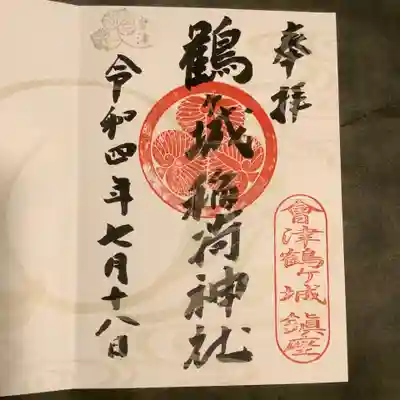 奉拝
會津鶴ヶ城鎮座
鶴ヶ城稲荷神社
令和四年七月十八日